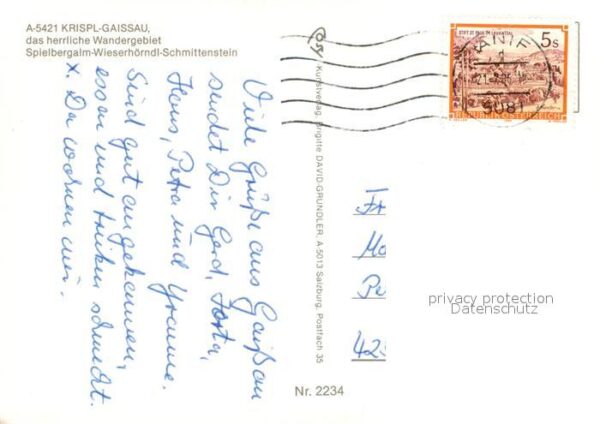 A-5421 KRISPL-GAISSAU,
das herrliche Wandergebiet
Spielbergalm-Wieserhörndl-Schmittenstein
Viele Grüße aus Gaißau
sendet Dir Gerd,
Hans, Petra und Yvonne.
Sind gut angekommen,
essen und trinken schmeckt.
x. Da waren wir.
Kunstverlag, Brigitte DAVID-GRUNDLER, A-5013 Salzburg, Postfach 35
Nr. 2234
STIFT ST. PAUL IM LAVANTTAL
5s
REPUBLIK ÖSTERREICH
ANIF
5081
Po
42
privacy protection
Datenschutz